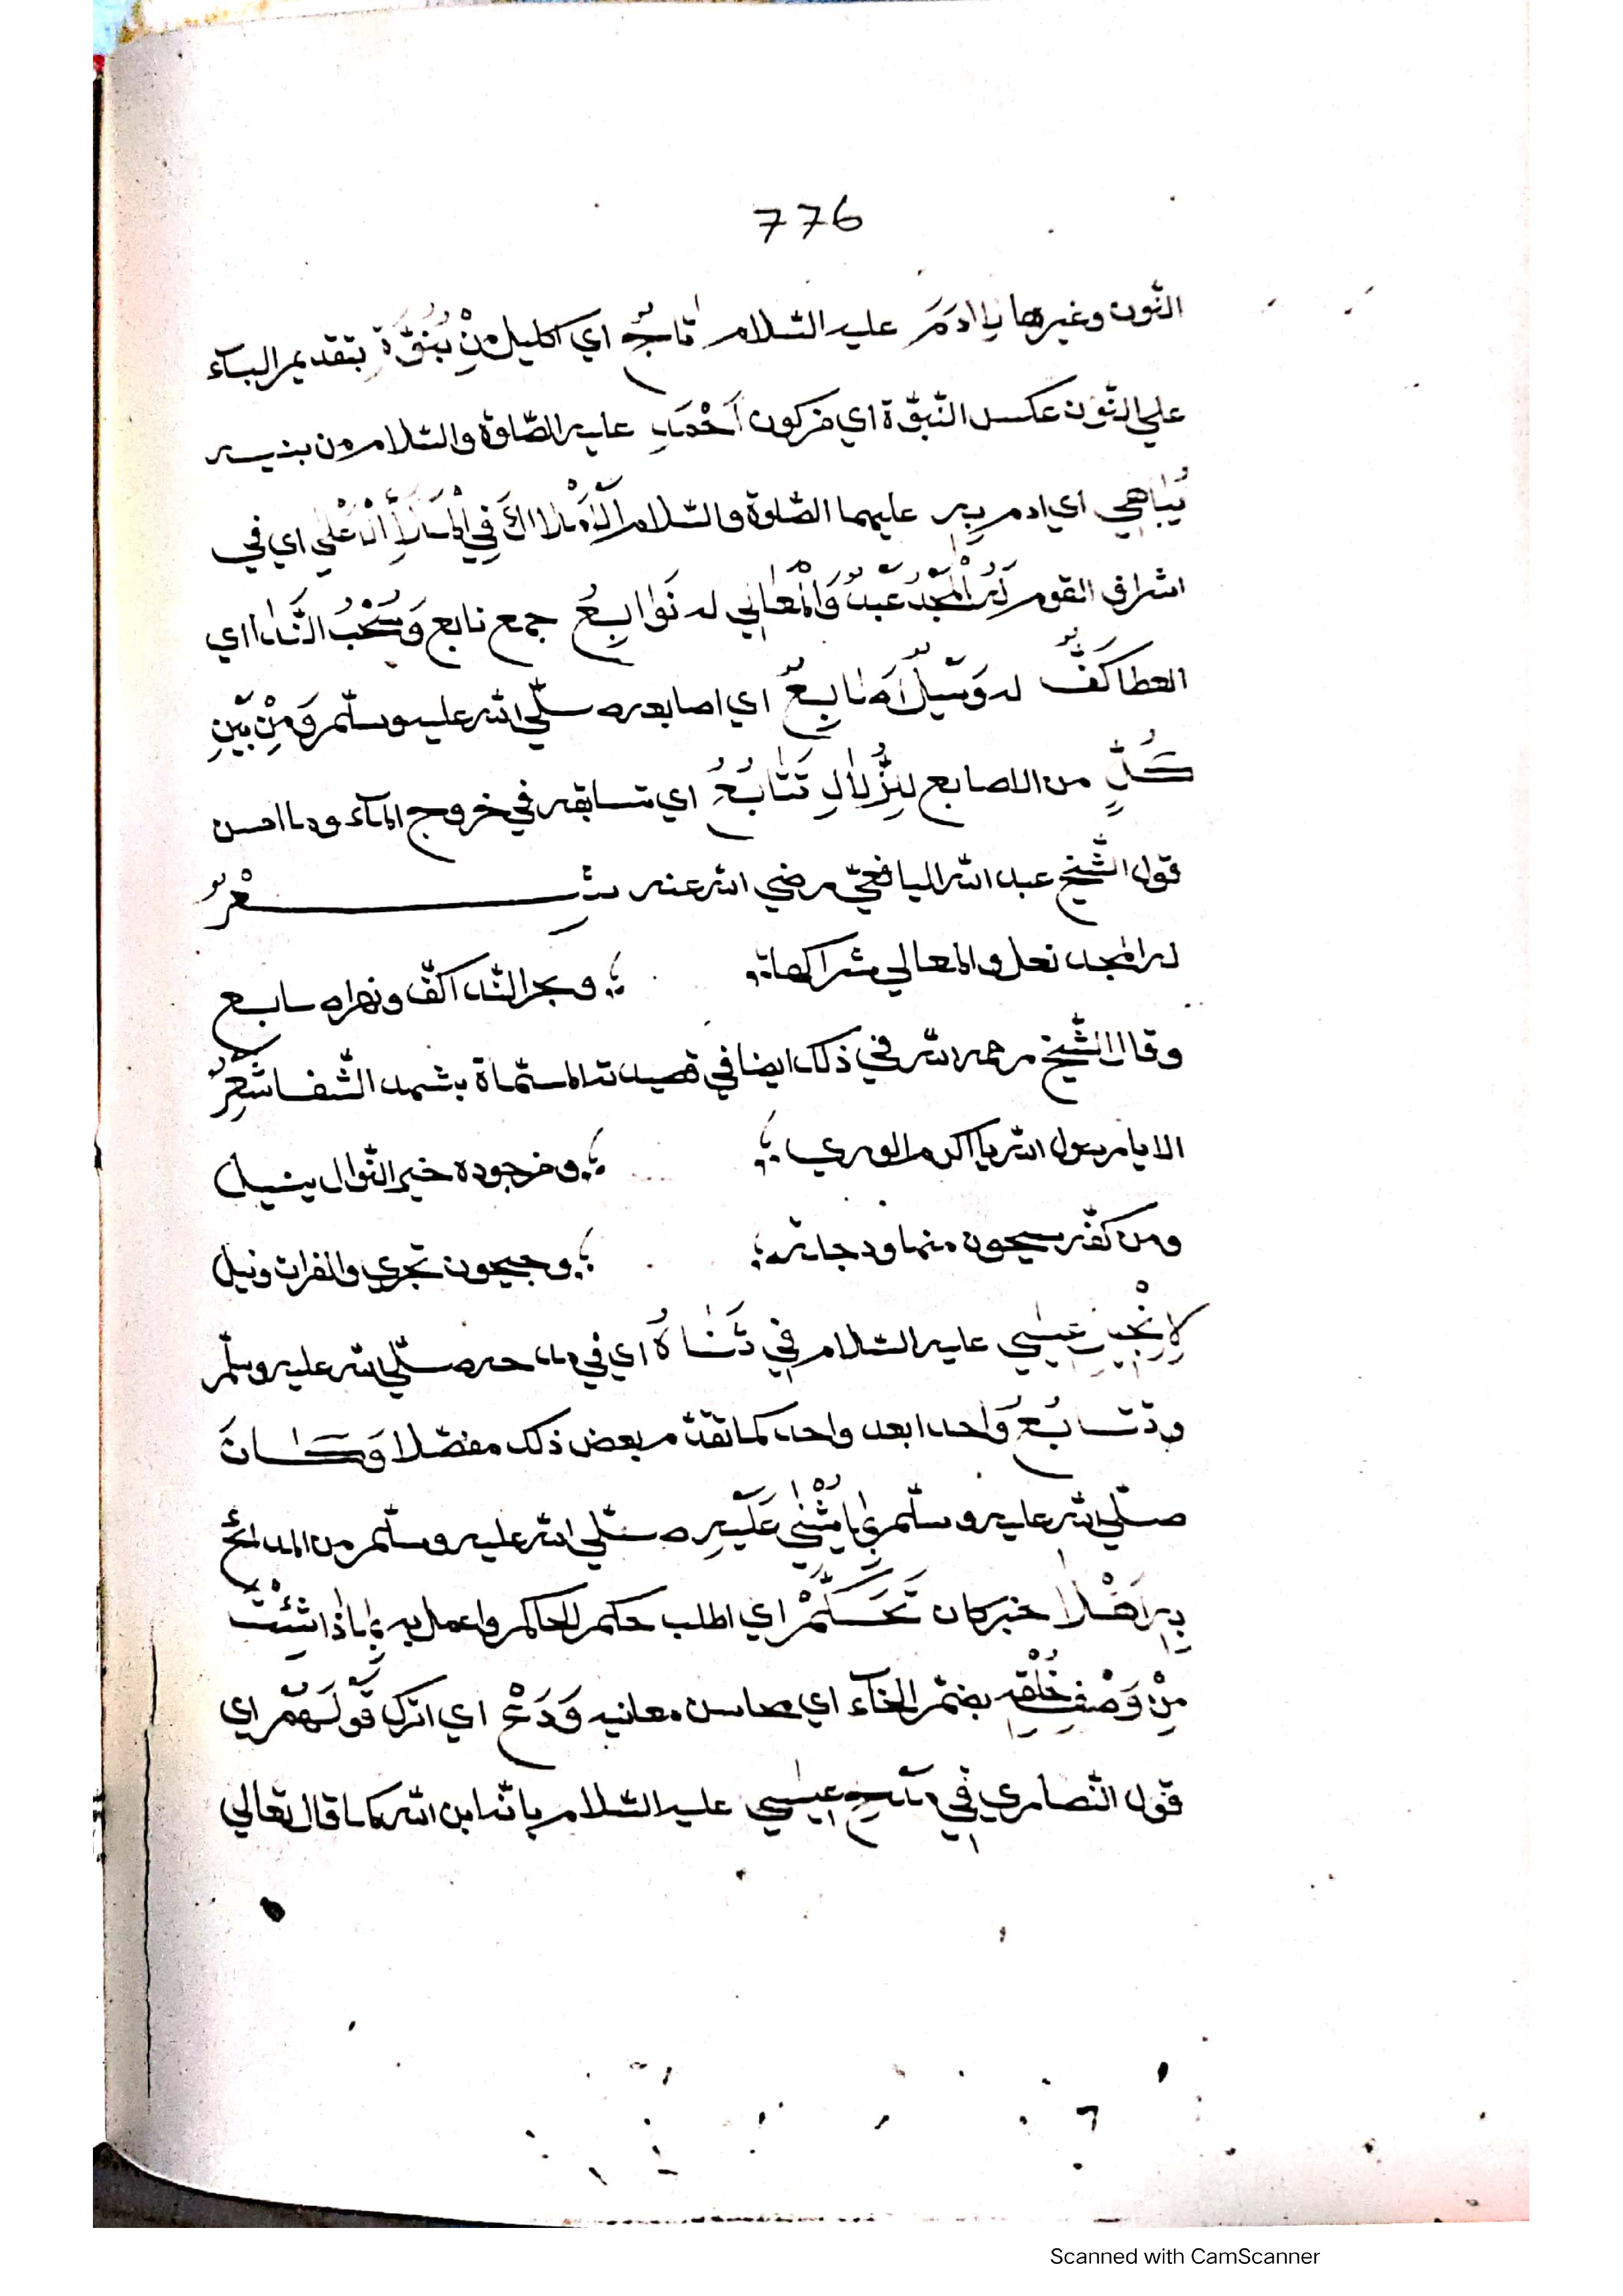 776
النّون وغيرها يا ادَمَ عليه السّلام تاجٌ اي اكليل مِنْ بُنُوَّةِ بتقديم البآء
علي النّون عكس النّبوّة اي من كون أَحْمَدِ عليه الصّلوة والسّلام من بنيه
يُبَاهِي اي ادم بِهِ عليهما الصّلوة والسّلام الأَمْلاكَ فِي الْمَلَأِ الْأَعْلَي اي في
اشراف القوم لَهُ الْمَجْدُ عَبْدٌ وَالْمَعَالِي له نَوَابِعُ جمع نابع وَسُحْبُ النَّدَا اي
العطا كَفٌّ له وَسَيْلٌ اَصَابِعٌ اي اصابعه صلّي الله عليه وسلّم وَمِنْ بَيْنِ
كُلٍّ من الاصابع لِلزُّلَالِ تَتَابُعُ اي تسابقه في خروج المآء وما احسن
قول الشّيخ عبد الله اليافعيّ رضي الله عنه شِعْرٌ
له المجد نعل والمعالي شراكها ؛ وبحر النّدا كفّ ونهراه سابع
وقال الشّيخ رحمه الله في ذلك ايضا في قصيدته المسمّاة بشهد الشّفا شِعْرٌ
الا يا رسول الله يا اكرم الوري ؛ ومن جوده خير النّوال ينيل
ومن كفّه سيحون منها ودجلة ؛ وجيحون تجري والفرات ونيل
لِإِنْجِيلِ عِيسَي عليه السّلام فِي ثَنَاهُ اي في مدحه صلّي الله عليه وسلّم
تَتَابُعُ واحدا بعد واحد كما تقدّم بعض ذلك مفصّلا وَكَانَ
صلّي الله عليه وسلّم بِمَا يُثْنَي عَلَيْهِ صلّي الله عليه وسلّم من المدائح
بِهِ اَهْلًا خبر كان تَحَكَّمْ اي اطلب حكم الحاكم واعمل به بِمَاذَا شِئْتَ
مِنْ وَصْفِ خُلْقِهِ بضمّ الخآء اي محاسن معانيه وَدَعْ اي اترك قَوْلَهُمْ اي
قول النّصاري فِي مَدْحِ عِيسَي عليه السّلام بانّه ابن الله كما قال تعالي
Scanned with CamScanner